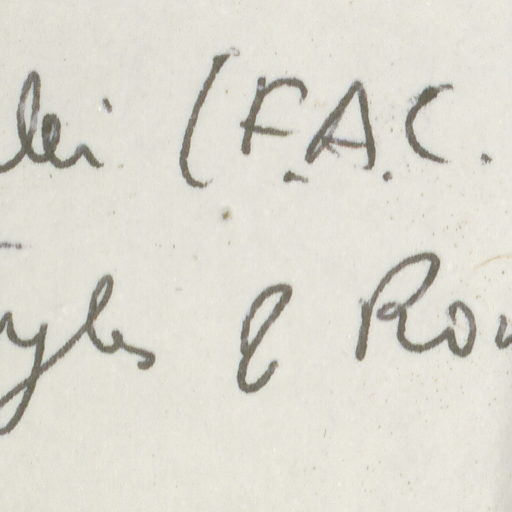 lei (F.A.C.
yles & Rou